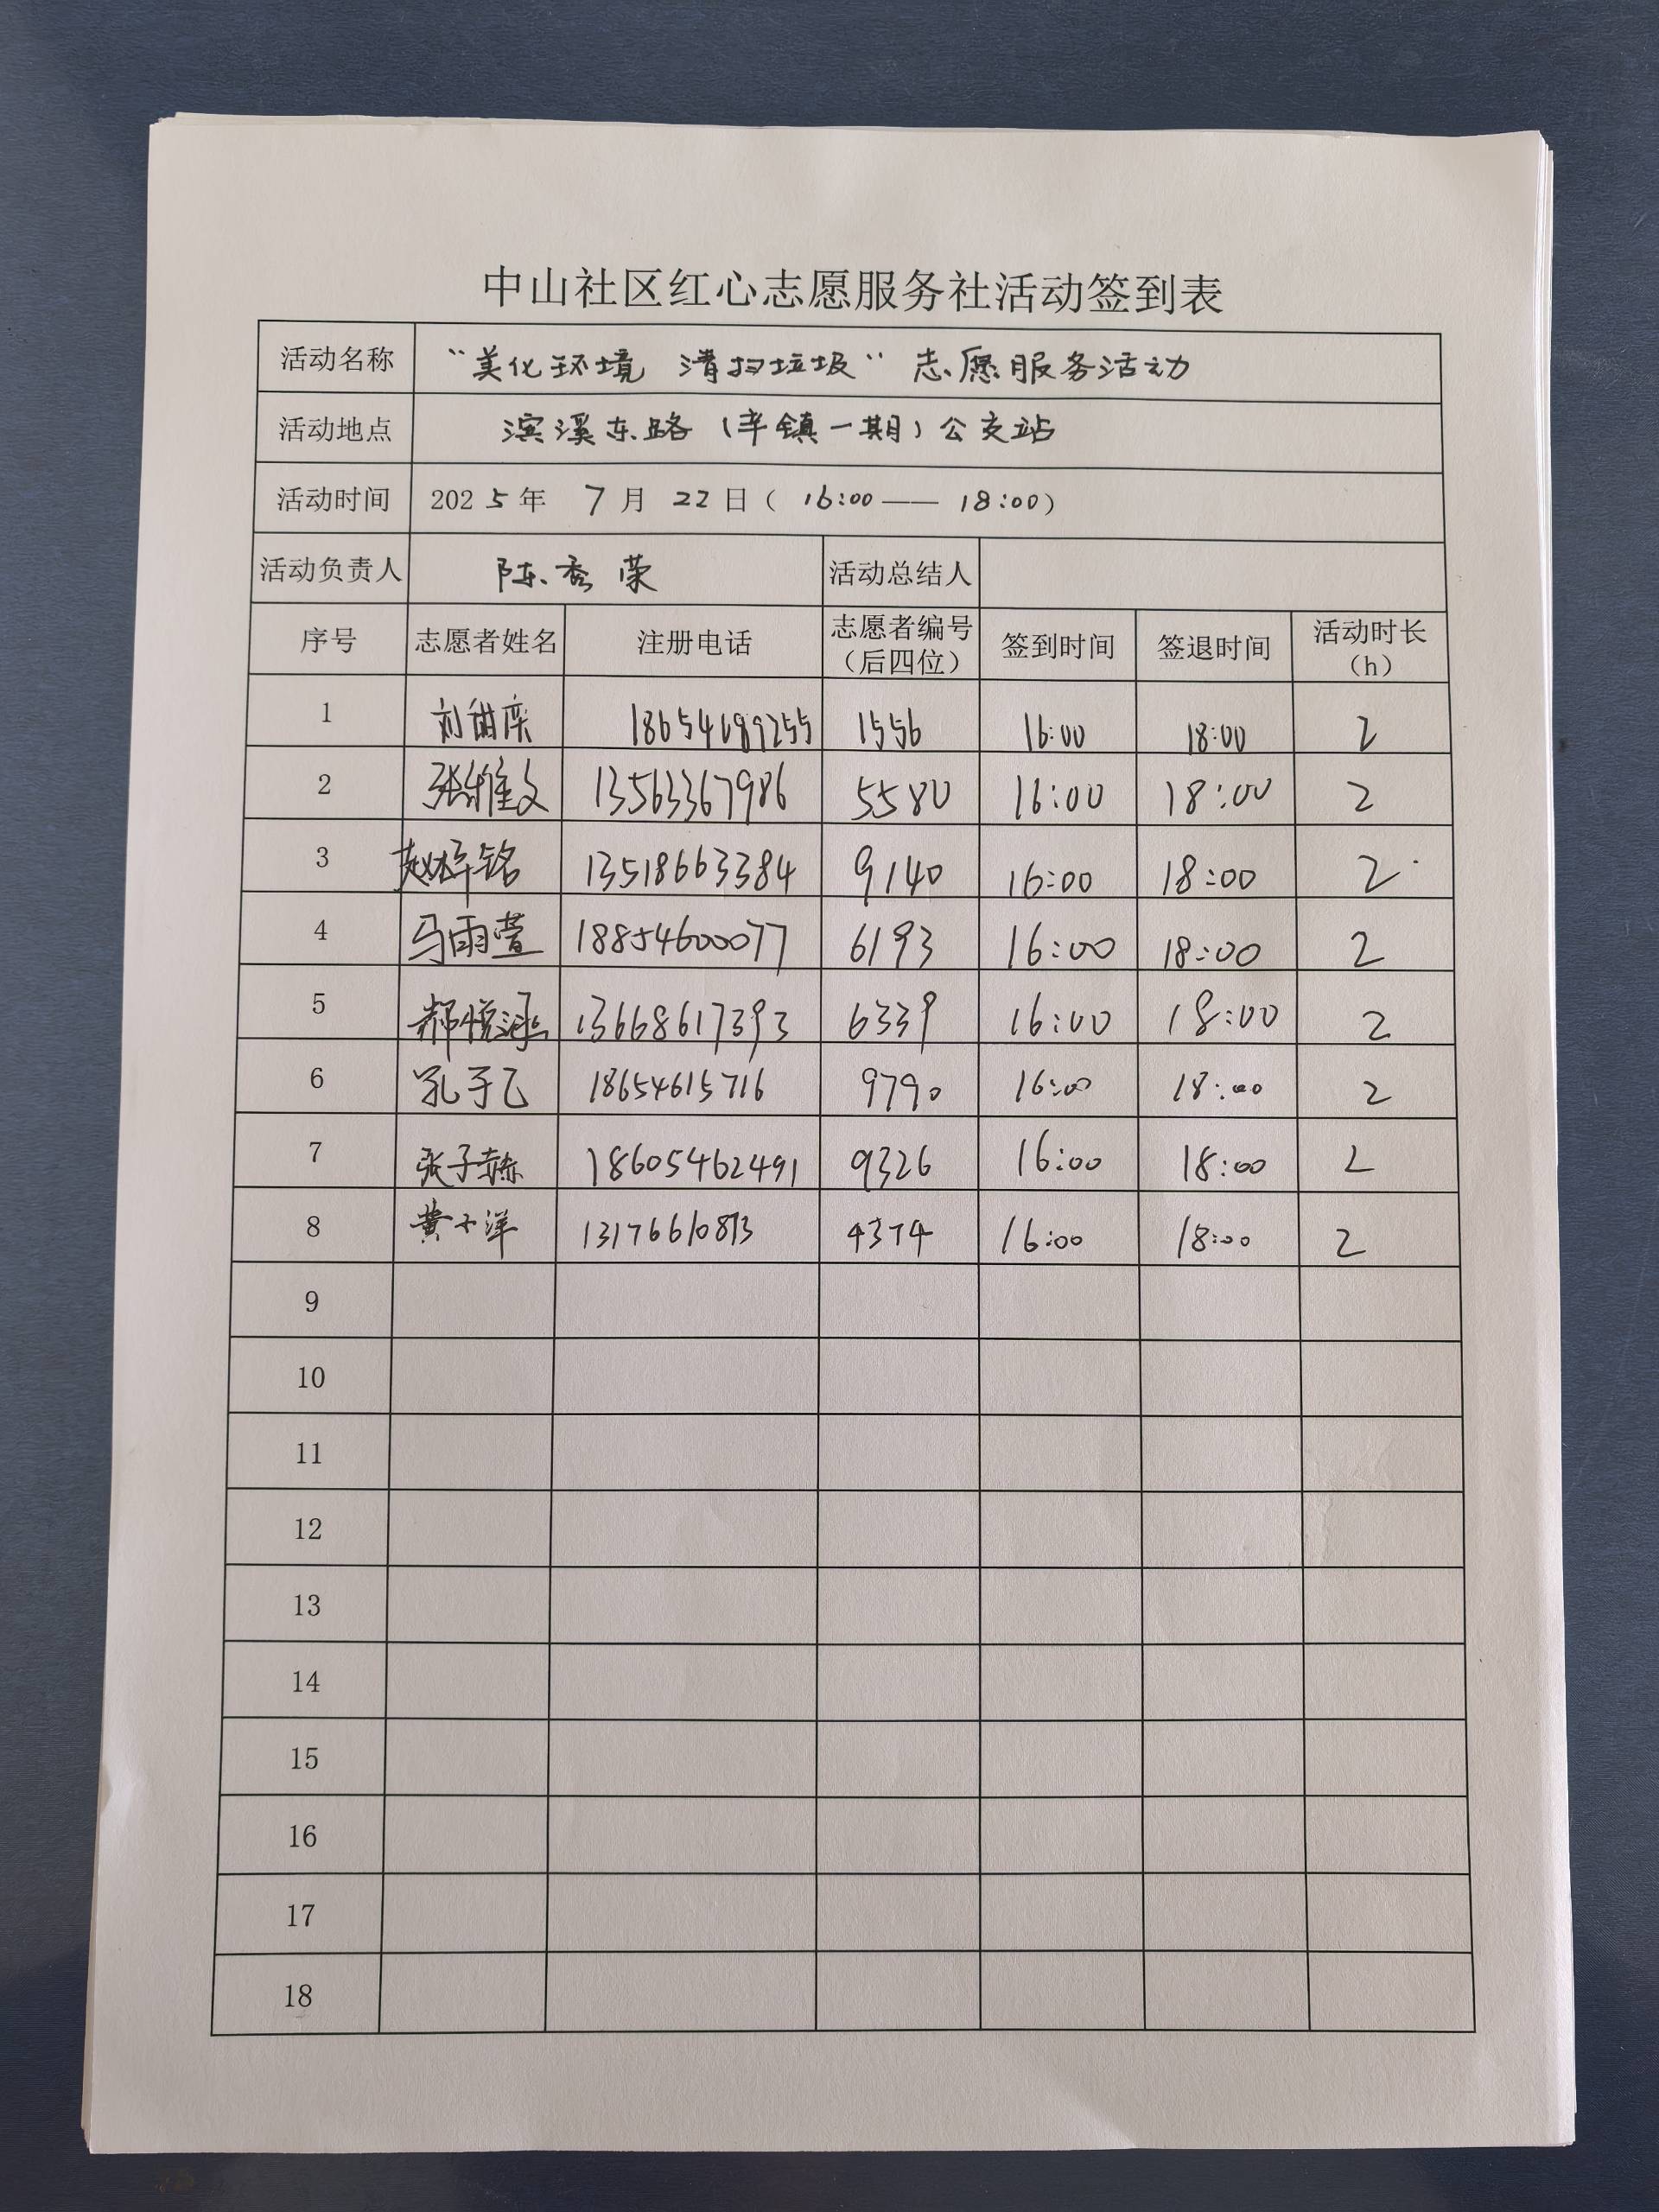 中山社区红心志愿服务社活动签到表
活动名称 “美化环境 清扫垃圾” 志愿服务活动
活动地点 滨溪东路(辛镇一期)公交站
活动时间 2025年 7月 22日( 16:00 —— 18:00)
活动负责人 陈秀荣 活动总结人
序号 志愿者姓名 注册电话 志愿者编号(后四位) 签到时间 签退时间 活动时长(h)
1 刘甜 1556 16:00 18:00 2
2 张雅文 13563367986 5580 16:00 18:00 2
3 赵梓铭 13518663384 9140 16:00 18:00 2
4 马雨萱 18854600077 6193 16:00 18:00 2
5 郝悦涵 13668617393 6339 16:00 18:00 2
6 孔于乙 18654615716 9790 16:00 18:00 2
7 张子赫 18605462491 9326 16:00 18:00 2
8 黄小洋 13176610873 4374 16:00 18:00 2
9
10
11
12
13
14
15
16
17
18